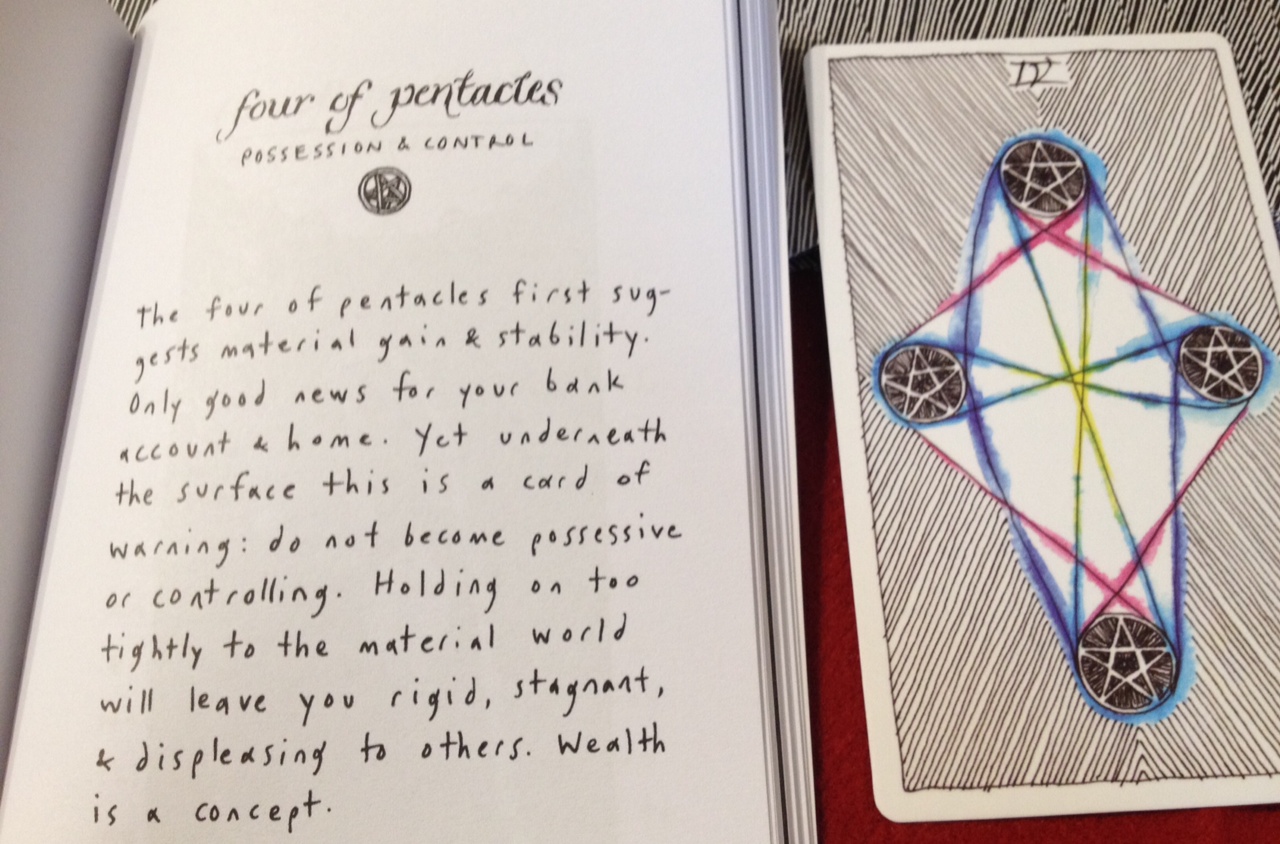 four of pentacles
POSSESSION & CONTROL
The four of pentacles first sug-
gests material gain & stability.
Only good news for your bank
account & home. Yet underneath
the surface this is a card of
warning: do not become possessive
or controlling. Holding on too
tightly to the material world
will leave you rigid, stagnant,
& displeasing to others. Wealth
is a concept.
IV